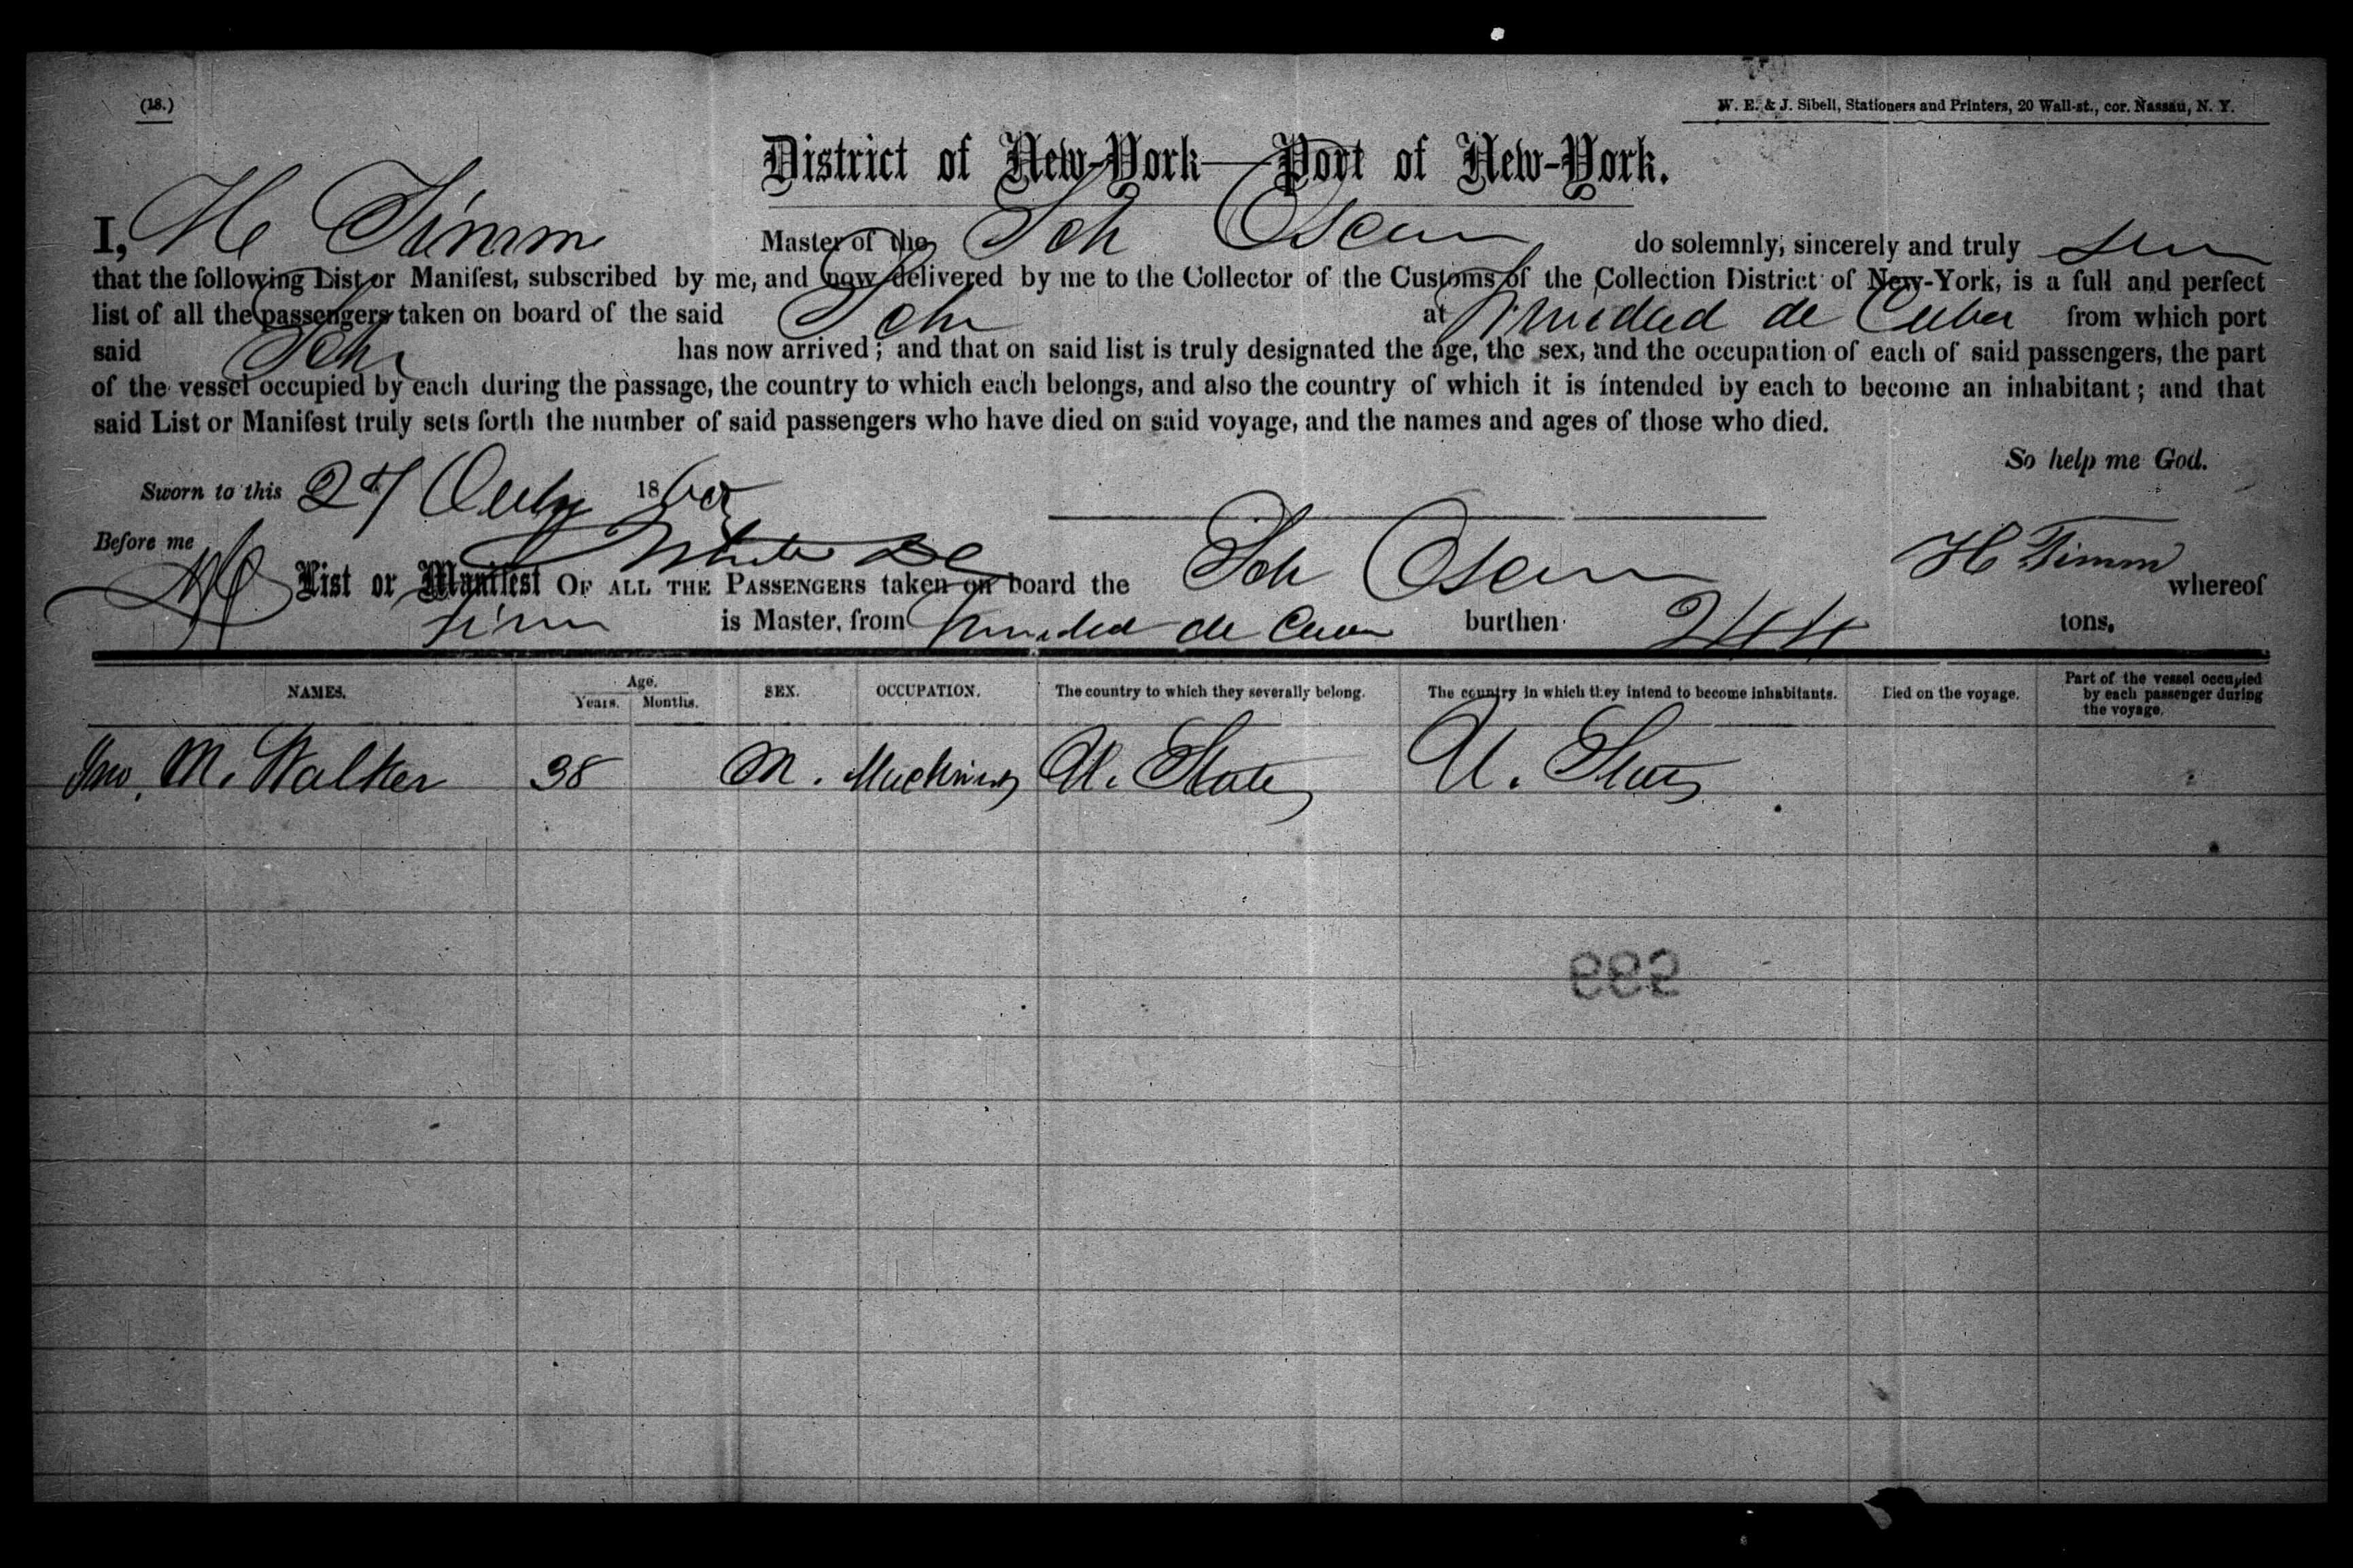 (18.)
W. E. & J. Sibell, Stationers and Printers, 20 Wall-st., cor. Nassau, N. Y.
District of New-York—Port of New-York.
I, H Timm Master of the Sch Ocean do solemnly, sincerely and truly
that the following List or Manifest, subscribed by me, and now delivered by me to the Collector of the Customs of the Collection District of New-York, is a full and perfect
list of all the passengers taken on board of the said Schr at Trinidad de Cuba from which port
said Schr has now arrived; and that on said list is truly designated the age, the sex, and the occupation of each of said passengers, the part
of the vessel occupied by each during the passage, the country to which each belongs, and also the country of which it is intended by each to become an inhabitant; and that
said List or Manifest truly sets forth the number of said passengers who have died on said voyage, and the names and ages of those who died.
So help me God.
Sworn to this 27 July 18
Before me
H Timm
List or Manifest OF ALL THE PASSENGERS taken on board the Sch Ocean whereof
Timm is Master, from Trinidad de Cuba burthen 244 tons.
NAMES. Age. Years. Months. SEX. OCCUPATION. The country to which they severally belong. The country in which they intend to become inhabitants. Died on the voyage. Part of the vessel occupied by each passenger during the voyage.
Jno. M. Walker 38 M. Machinist U. States U. States